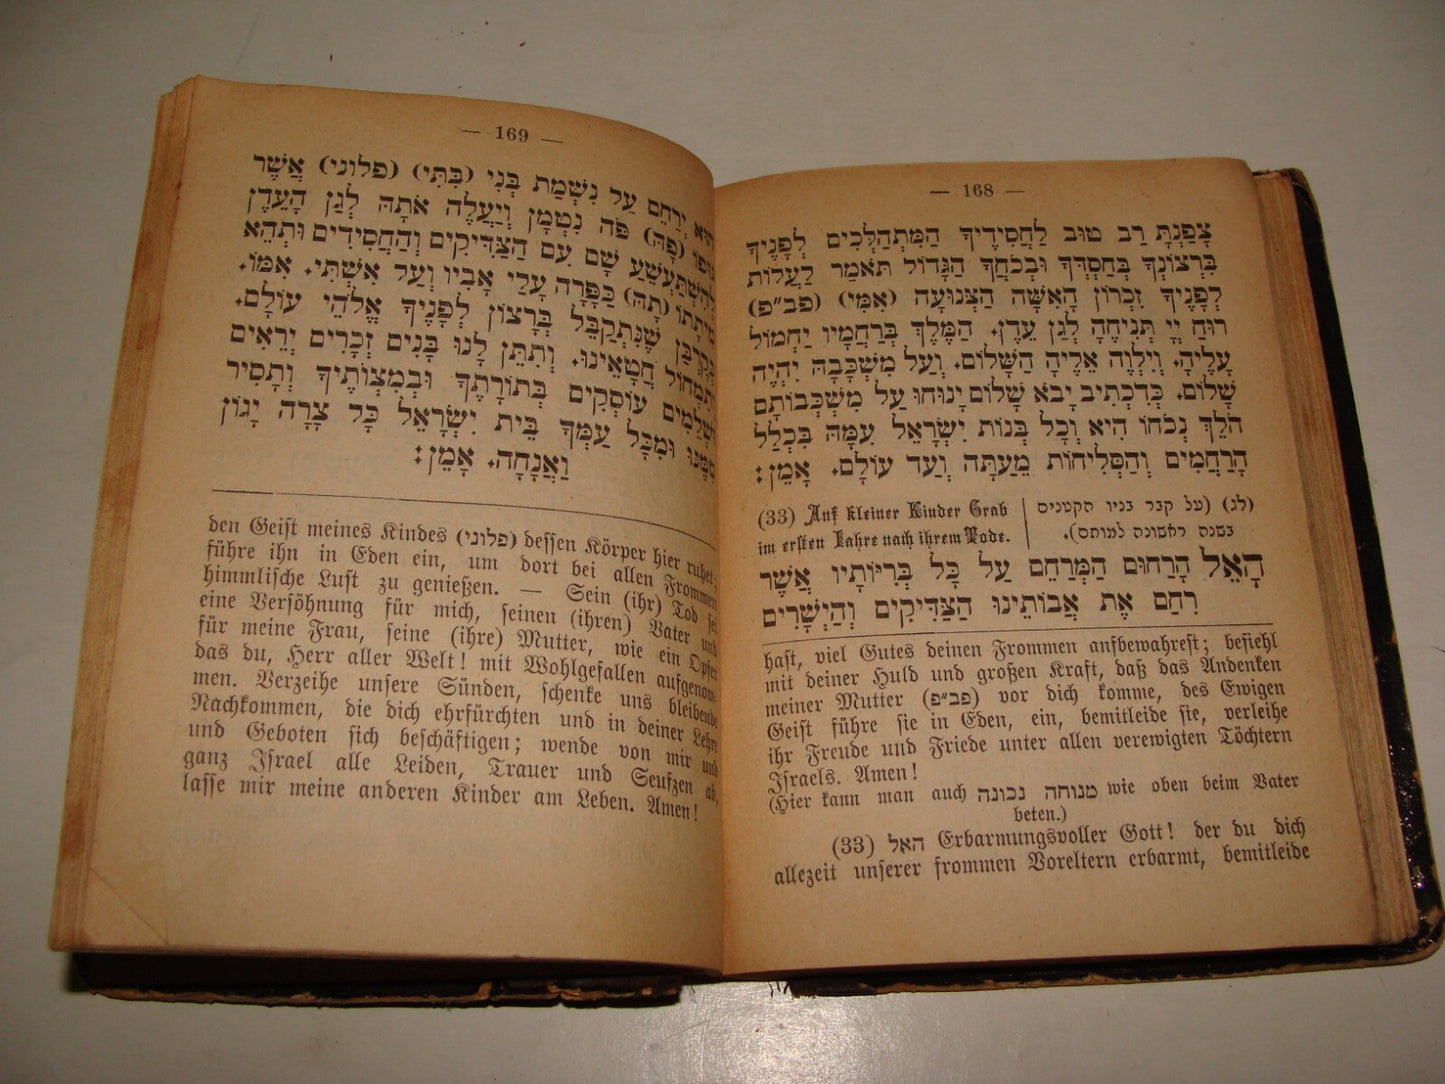 — 168 —
צָפַנְתָּ רַב טוּב לַחֲסִידֶיךָ הַמִּתְהַלְּכִים לְפָנֶיךָ
בִּרְצוֹנְךָ בְּחַסְדְּךָ וּבְכֹחֲךָ הַגָּדוֹל תֹּאמַר לַעֲלוֹת
לְפָנֶיךָ זִכְרוֹן הָאִשָּׁה הַצְּנוּעָה (אִמִּי) (פב״פ)
רוּחַ יְיָ תְּנִיחֶהָ לְגַן עֵדֶן. הַמֶּלֶךְ בְּרַחֲמָיו יַחְמוֹל
עָלֶיהָ. וְיִלְוֶה אֵלֶיהָ הַשָּׁלוֹם. וְעַל מִשְׁכָּבָהּ יִהְיֶה
שָׁלוֹם. כְּדִכְתִיב יָבֹא שָׁלוֹם יָנוּחוּ עַל מִשְׁכְּבוֹתָם
הֹלֵךְ נְכֹחוֹ הִיא וְכָל בְּנוֹת יִשְׂרָאֵל עִמָּהּ בִּכְלַל
הָרַחֲמִים וְהַסְּלִיחוֹת מֵעַתָּה וְעַד עוֹלָם. אָמֵן:
(לג) (על קבר בניו הקטנים
בשנה ראשונה למותם).
(33) Auf kleiner Kinder Grab
im ersten Jahre nach ihrem Tode.
הָאֵל הָרַחוּם הַמְּרַחֵם עַל כָּל בְּרִיּוֹתָיו אֲשֶׁר
רִחַם אֶת אֲבוֹתֵינוּ הַצַּדִּיקִים וְהַיְשָׁרִים
hast, viel Gutes deinen Frommen aufbewahrest; befiehl
mit deiner Huld und großen Kraft, daß das Andenken
meiner Mutter (פב״פ) vor dich komme, des Ewigen
Geist führe sie in Eden, ein, bemitleide sie, verleihe
ihr Freude und Friede unter allen verewigten Töchtern
Israels. Amen!
(Hier kann man auch מנוחה נכונה wie oben beim Vater
beten.)
(33) האל Erbarmungsvoller Gott! der du dich
allezeit unserer frommen Voreltern erbarmt, bemitleide
— 169 —
הוּא יְרַחֵם עַל נִשְׁמַת בְּנִי (בִּתִּי) (פלוני) אֲשֶׁר
גּוּפוֹ (פָהּ) פֹּה נִטְמָן וְיַעֲלֶה אֹתָהּ לְגַן הָעֵדֶן
לְהִשְׁתַּעֲשֵׁעַ שָׁם עִם הַצַּדִּיקִים וְהַחֲסִידִים וּתְהֵא
מִיתָתוֹ (תָהּ) כַּפָּרָה עָלַי אָבִיו וְעַל אִשְׁתִּי. אִמּוֹ.
כְּקָרְבָּן שֶׁנִּתְקַבֵּל בְּרָצוֹן לְפָנֶיךָ אֱלֹהֵי עוֹלָם.
וְתִמְחוֹל חֲטָאֵינוּ. וְתִתֵּן לָנוּ בָּנִים זְכָרִים יְרֵאִים
וּשְׁלֵמִים עוֹסְקִים בְּתוֹרָתֶךָ וּבְמִצְוֹתֶיךָ וְתָסִיר
מִמֶּנּוּ וּמִכָּל עַמְּךָ בֵּית יִשְׂרָאֵל כָּל צָרָה יָגוֹן
וַאֲנָחָה. אָמֵן:
den Geist meines Kindes (פלוני) dessen Körper hier ruhet;
führe ihn in Eden ein, um dort bei allen Frommen
himmlische Lust zu genießen. — Sein (ihr) Tod sei
eine Versöhnung für mich, seinen (ihren) Vater und
für meine Frau, seine (ihre) Mutter, wie ein Opfer
das du, Herr aller Welt! mit Wohlgefallen aufgenom-
men. Verzeihe unsere Sünden, schenke uns bleibende
Nachkommen, die dich ehrfürchten und in deiner Lehre
und Geboten sich beschäftigen; wende von mir und
ganz Israel alle Leiden, Trauer und Seufzen ab,
lasse mir meine anderen Kinder am Leben. Amen!